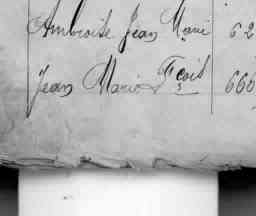 Ambroise Jean Marie 62
Jean Marie Fcois 666